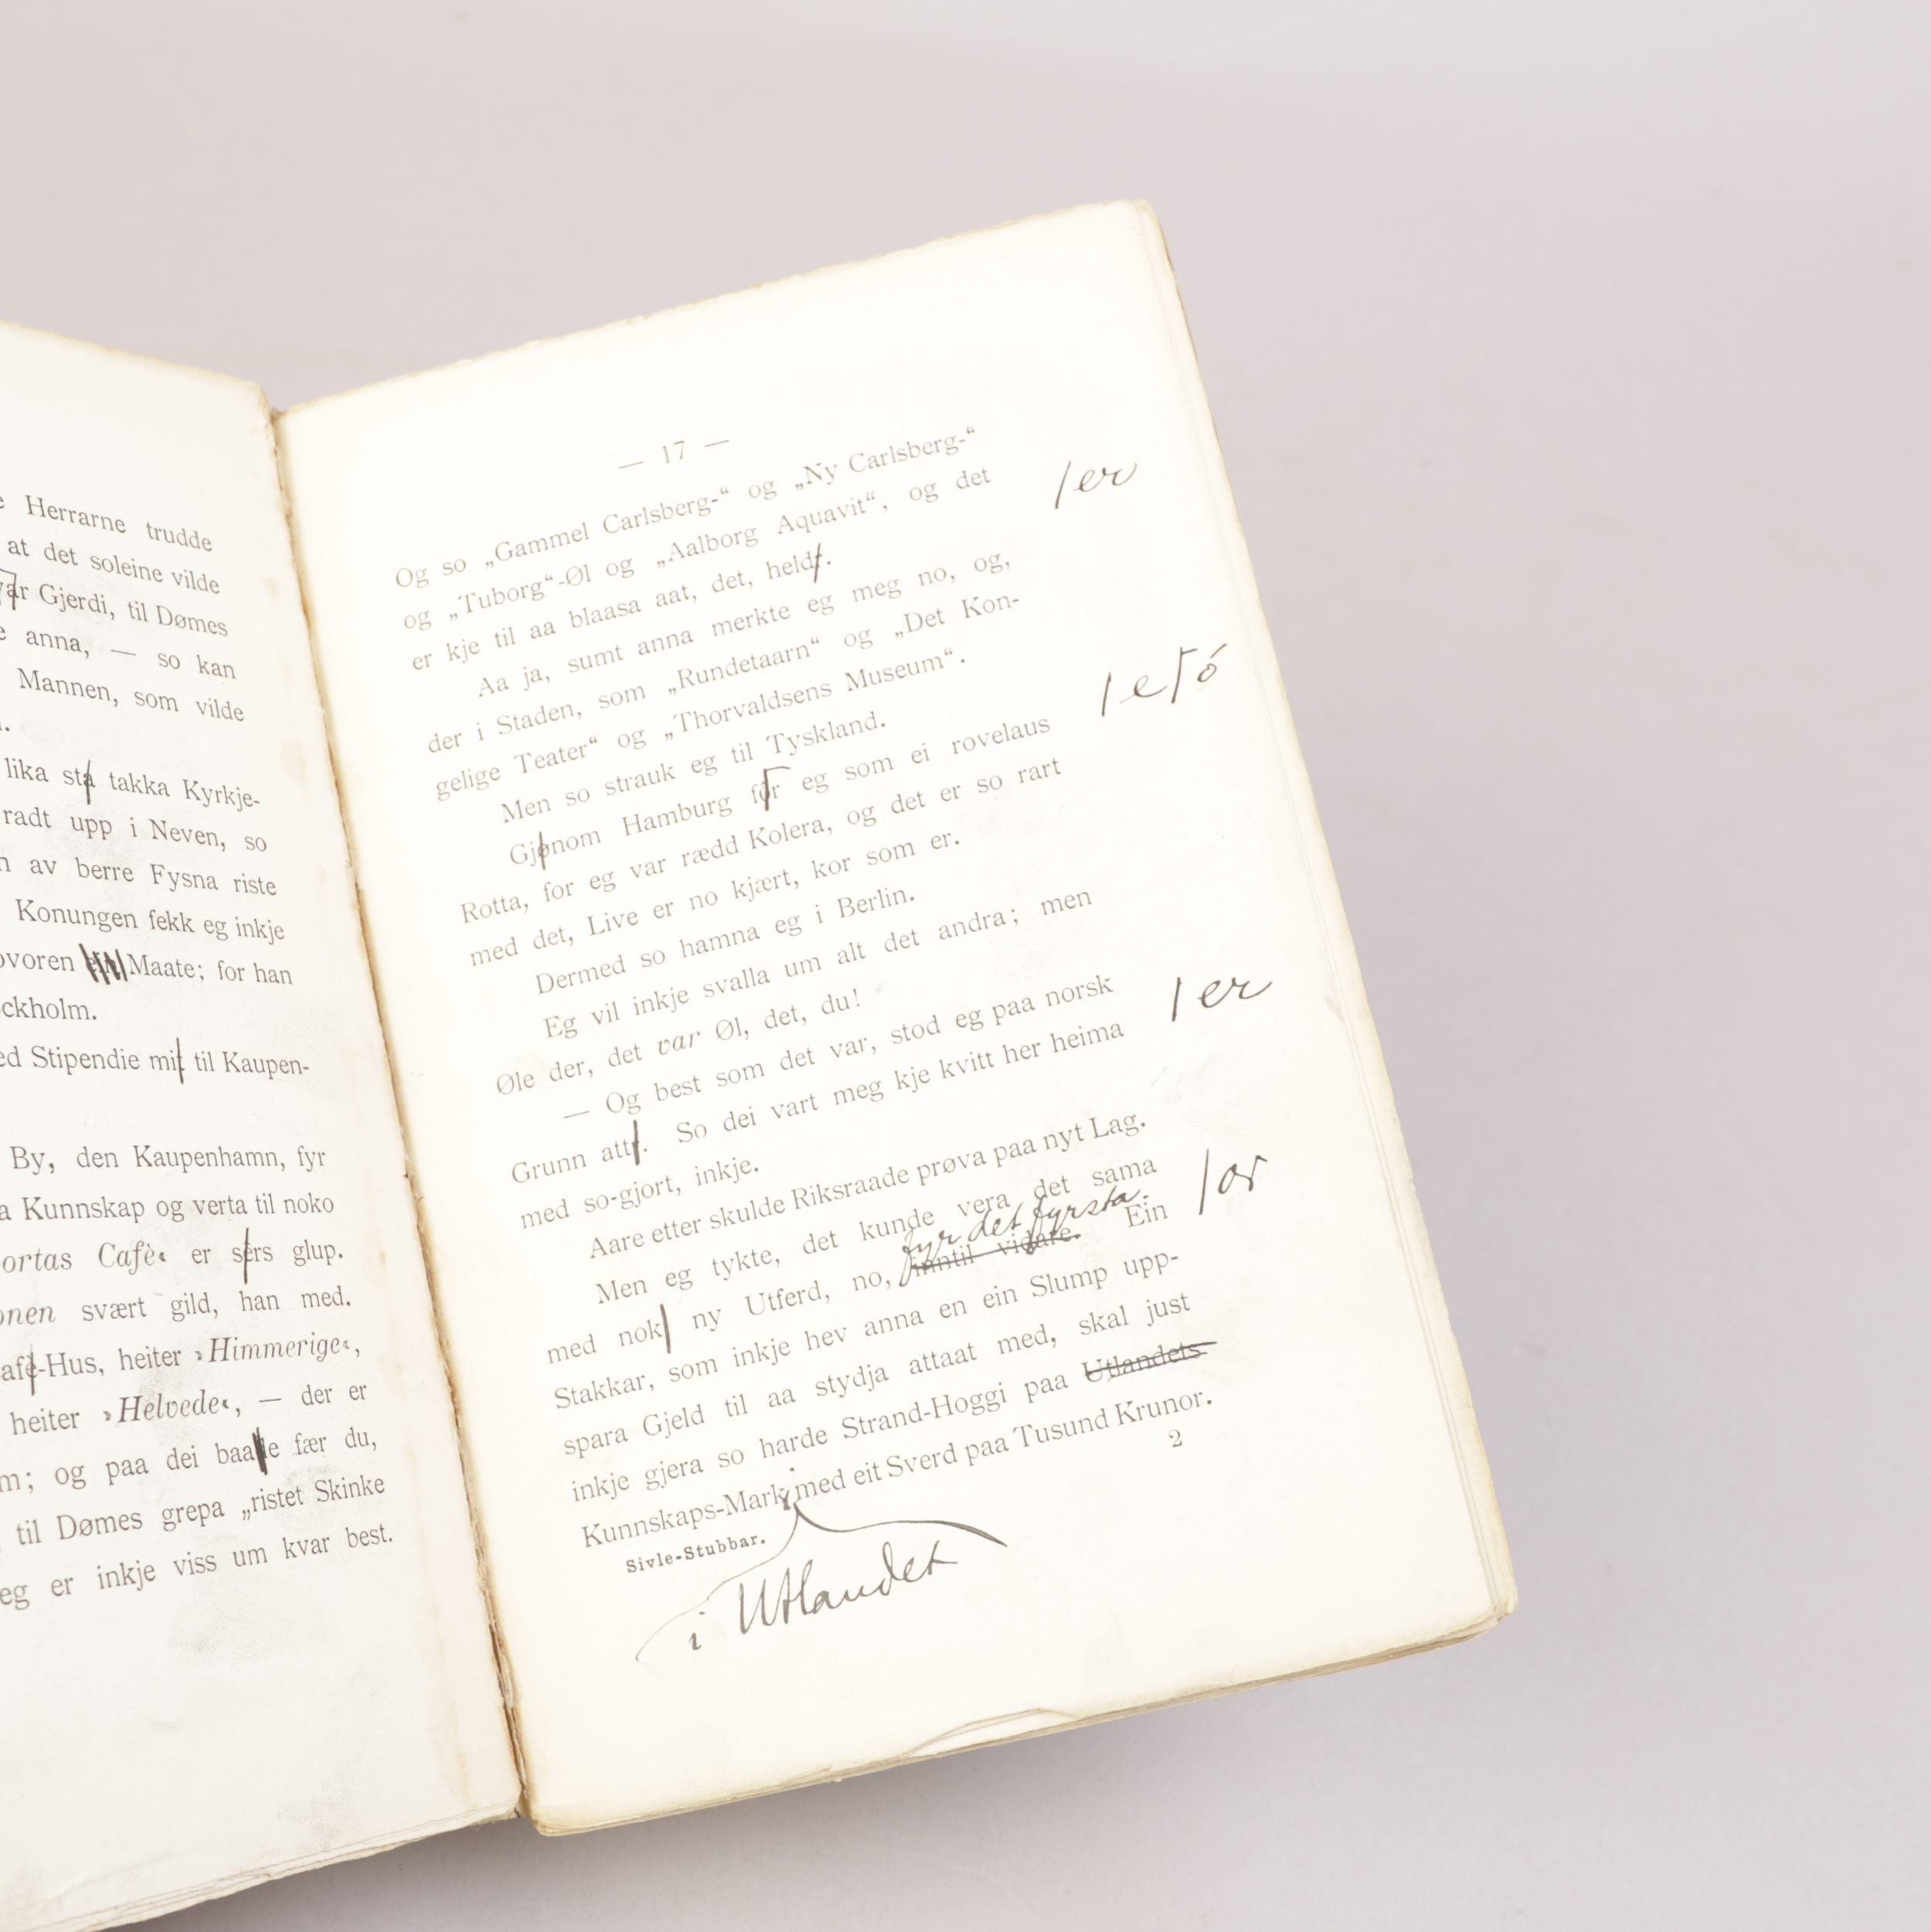 Herrarne trudde
at det soleine vilde
var Gjerdi, til Dømes
anna, — so kan
Mannen, som vilde
lika sta takka Kyrkje-
radt upp i Neven, so
av berre Fysna riste
Konungen fekk eg inkje
Maate; for han
ckholm.
ed Stipendie mit til Kaupen-
By, den Kaupenhamn, fyr
a Kunnskap og verta til noko
ortas Cafè« er sers glup.
onen svært gild, han med.
afè-Hus, heiter »Himmerige«,
heiter »Helvede«, — der er
m; og paa dei baa e fær du,
til Dømes grepa „ristet Skinke
eg er inkje viss um kvar best.
— 17 —
Og so „Gammel Carlsberg-“ og „Ny Carlsberg-“
og „Tuborg“-Øl og „Aalborg Aquavit“, og det
er kje til aa blaasa aat, det, heldr. /er
Aa ja, sumt anna merkte eg meg no, og,
der i Staden, som „Rundetaarn“ og „Det Kon-
gelige Teater“ og „Thorvaldsens Museum“.
Men so strauk eg til Tyskland.
Gjønom Hamburg før eg som ei rovelaus /e ó
Rotta, for eg var rædd Kolera, og det er so rart
med det, Live er no kjært, kor som er.
Dermed so hamna eg i Berlin.
Eg vil inkje svalla um alt det andra; men
Øle der, det var Øl, det, du!
— Og best som det var, stod eg paa norsk
Grunn attr. So dei vart meg kje kvitt her heima /er
med so-gjort, inkje.
Aare etter skulde Riksraade prøva paa nyt Lag.
Men eg tykte, det kunde vera det sama
fyr det fyrsta.
med nok ny Utferd, no, inntil vidare. Ein /or
Stakkar, som inkje hev anna en ein Slump upp-
spara Gjeld til aa stydja attaat med, skal just
inkje gjera so harde Strand-Hoggi paa Utlandets
Kunnskaps-Mark med eit Sverd paa Tusund Krunor.
Sivle-Stubbar. 2
i Utlandet